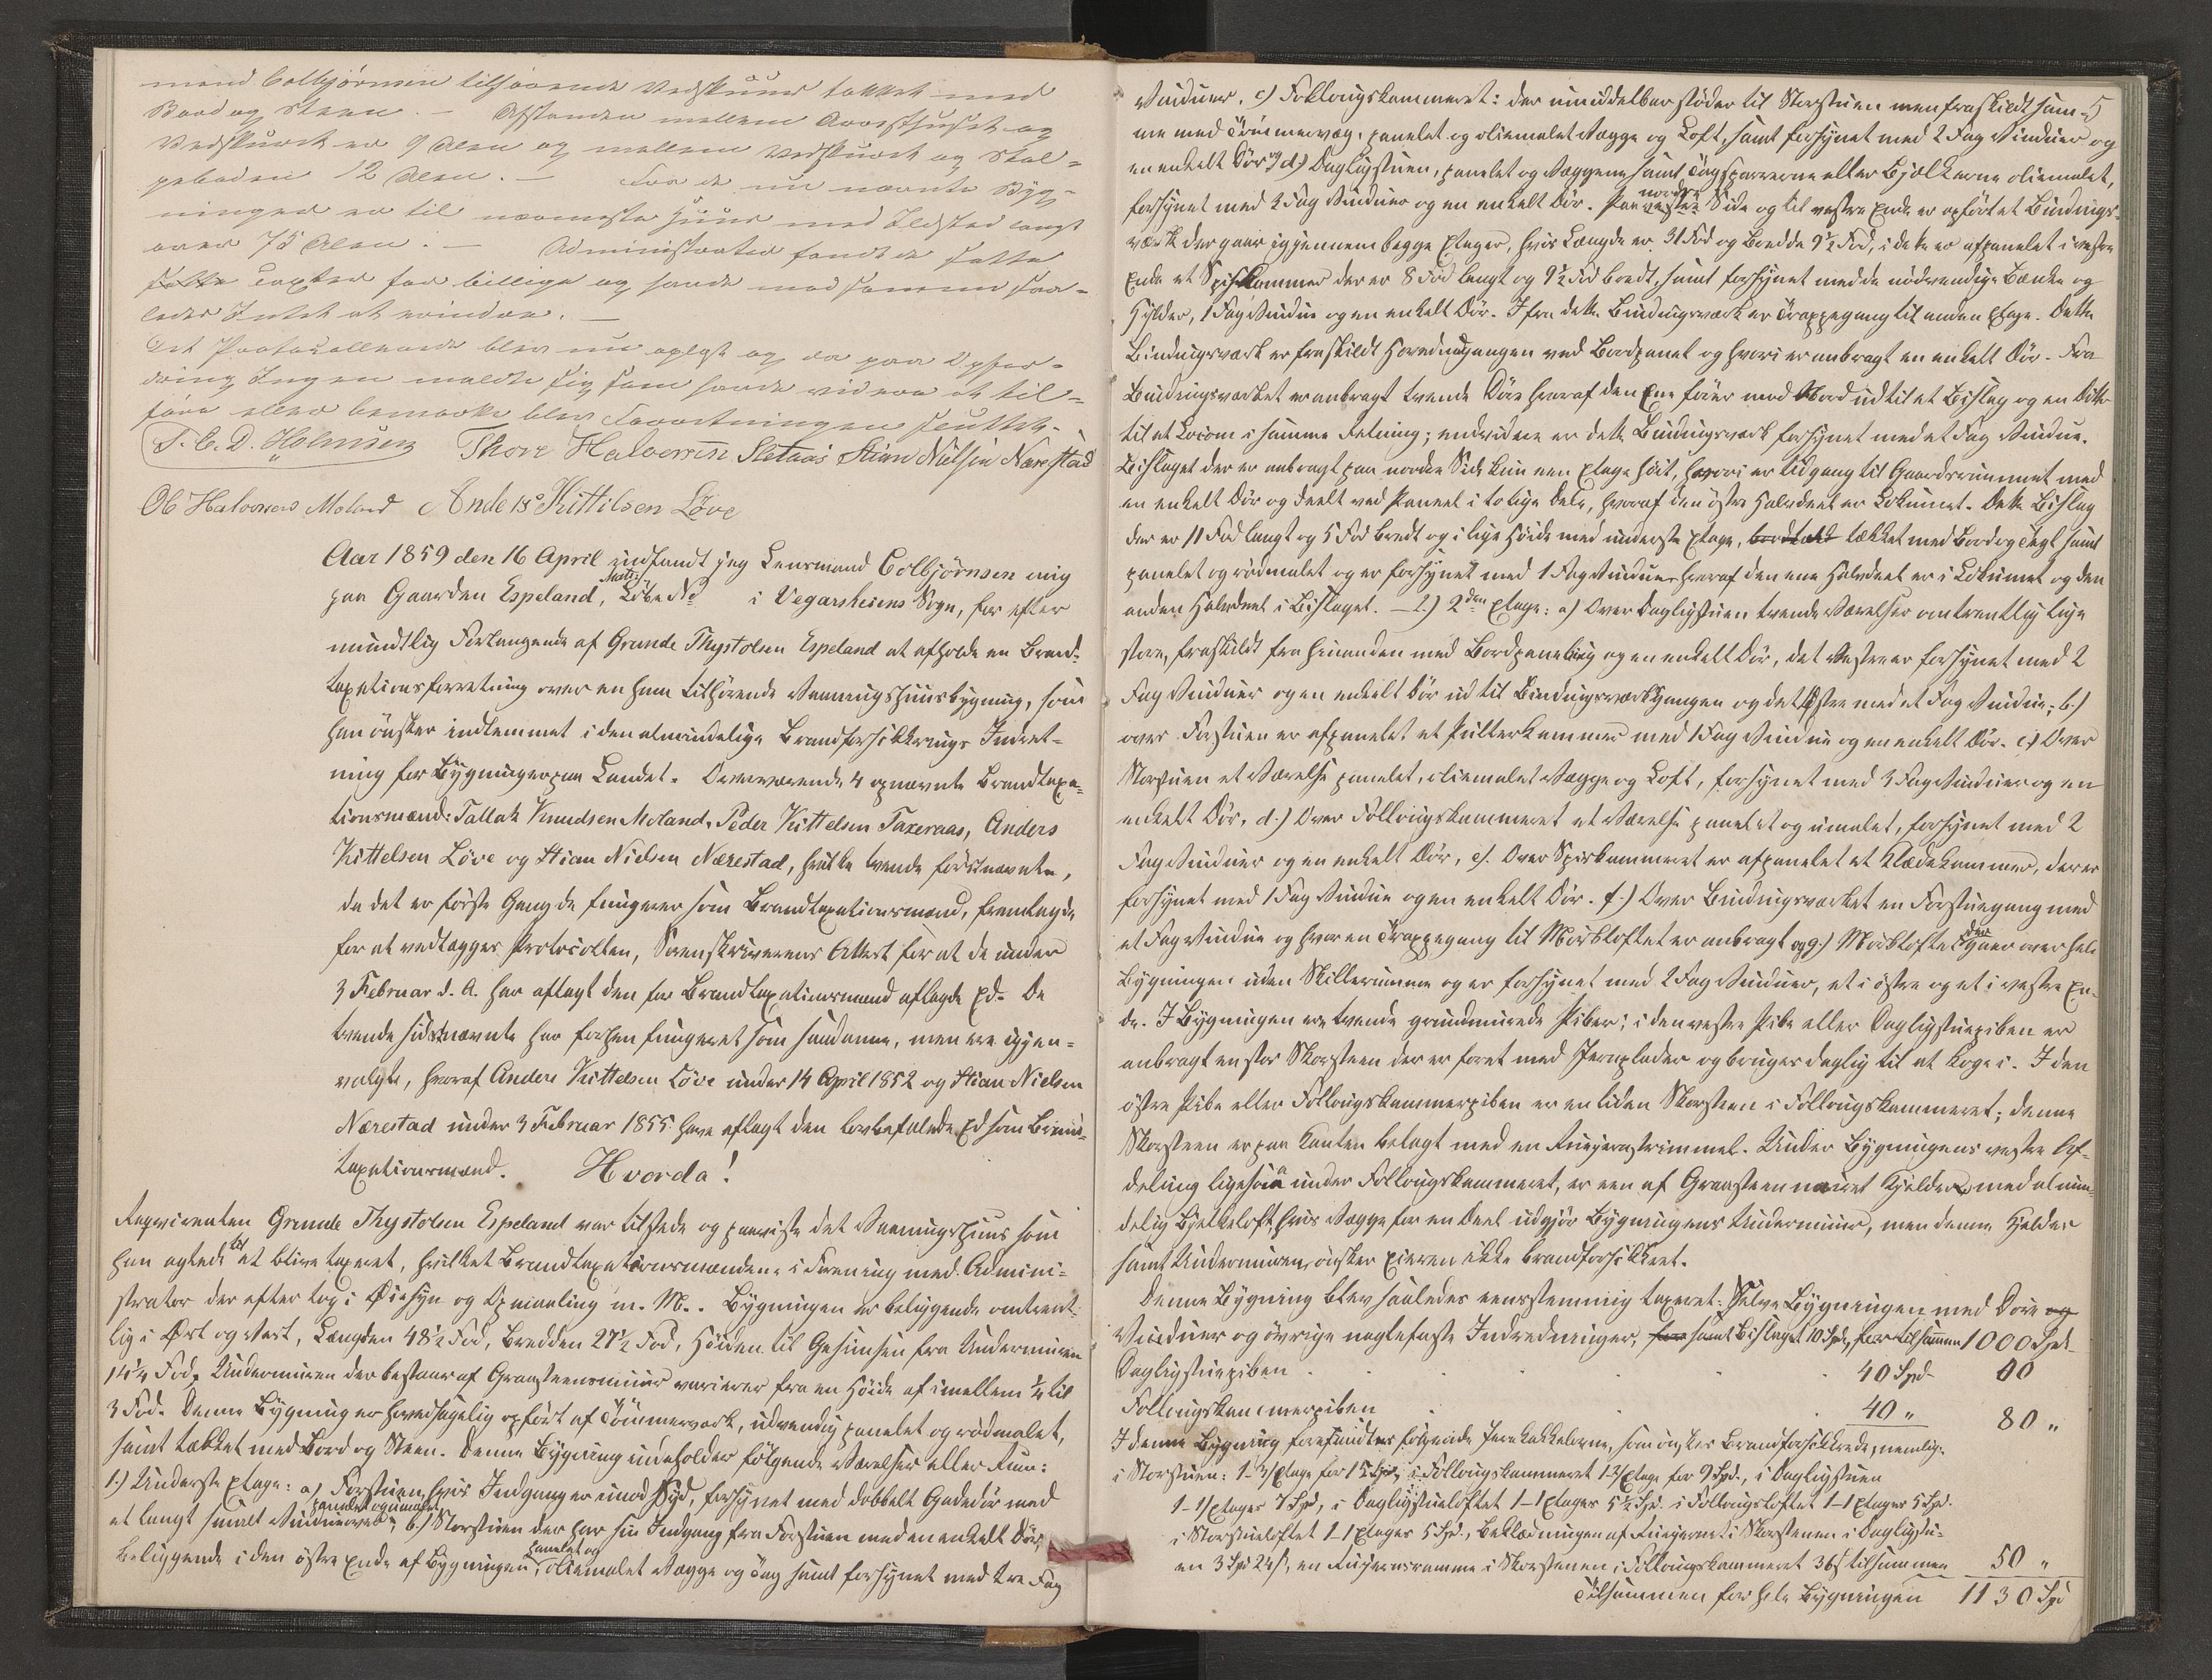 mand Colbjörnsen tilhörende Vedskuur takket med
Bord og Steen. – Afstanden mellem Arresthuset og
Vedskuret er 9 Alen og mellem Vedskuret og Stal-
gebaden 12 Alen. – Fra de nu nævnte Byg-
ninger er til nærmeste Huus med Ildsted langt
over 75 Alen. – Administrator fandt de satte
Taxter for billige og havde mod samme saa-
ledes Intet at erindre. –
Det Protocollerede blev nu oplæst og da paa Opfor-
dring Ingen meldte sig som havde videre at til-
føre eller bemærke blev Forretningen sluttet.
T. C. D. Holmsen Thore Halvorsen Sletaas Stian Nielsen Nærestad
Ole Halvorsen Moland Anders Kittilsen Löve
Aar 1859 den 16 April indfandt jeg Lensmand Colbjörnsen mig
paa Gaarden Espeland, Matr. Löbe No i Vegarsheiens Sogn, for efter
mundtlig Forlangende af Grunde Thystolsen Espeland at afholde en Brand-
taxationsforretning over en ham tilhörende Vaaningshuusbygning, som
han önsker indlemmet i den almindelige Brandforsikkrings Indret-
ning for Bygninger paa Landet. Overværende 4 opnævnte Brandtaxa-
tionsmænd: Tallak Knudsen Moland, Peder Kittelsen Taxeraas, Anders
Kittelsen Löve og Stian Nielsen Nærestad, hvilke tvende förstnævnte,
da det er förste Gang de fungerer som Brandtaxationsmænd, fremlagde
for at vedlægges Protocollen, Sorenskriverens Attest for at de under
3 Februar d. A. har aflagt den for Brandtaxationsmænd aflagde Ed. De
tvende sidstnævnte har forhen fungeret som saadanne, men ere igjen-
valgte, hvoraf Anders Kittelsen Löve under 14 April 1852 og Stian Nielsen
Nærestad under 3 Februar 1855 have aflagt den lovbefalede Ed som Brand-
taxationsmænd. Hvorda!
Reqvirenten Grunde Thystolsen Espeland var tilstede og paaviste det Vaaningshuus som
han agtede til at blive taxeret, hvilket Brandtaxationsmændene i Forening med Admini-
strator derefter tog i Øiesyn og Opmaaling m. M.. Bygningen er beliggende omtrent-
lig i Øst og Vest, Længden 48½ Fod, Bredden 27½ Fod, Höiden til Gesimsen fra Undermuren
14¼ Fod. Undermuren der bestaar af Graasteensmuur varierer fra en Höide af imellem ¼ til
3 Fod. Denne Bygning er hovedsagelig opfört af Tömmerværk, udvendig panelet og rödmalet,
samt takket med Bord og Steen. Denne Bygning indeholder fölgende Værelser eller Rum:
1.) Underste Etage: a) Forstuen, hvis Indgang er imod Syd, forsynet med dobbelt Gadedör med
et langt smalt Vindue over, panelet og umalet; b.) Storstuen der har sin Indgang fra Forstuen med en enkelt Dör,
beliggende i den östre Ende af Bygningen, panelet og oliemalet Vægge og Tag samt forsynet med tre Fag
5
Vinduer. c) Follougskammeret: der umiddelbar stöder til Storstuen men fraskildt sam-
me med Tömmervæg, panelet og oliemalet Vægge og Loft, samt forsynet med 2 Fag Vinduer og
en enkelt Dör og d.) Dagligstuen, panelet og Væggene samt Tagsparrerne eller Bjælkerne oliemalet,
forsynet med 3 Fag Vinduer og en enkelt Dör. Paa vestre nordre Side og til vestre Ende er opfört et Bindings-
værk der gaar igjennem begge Etager, hvis Længde er 31 Fod og Bredde 9½ Fod, i dette er afpanelet i vestre
Ende et Spiskammer der er 8 Fod langt og 9½ Fod bredt, samt forsynet med de nödvendige Bænke og
Hylder, 1 Fag Vindue og en enkelt Dör. Ifra dette Bindingsværk er Trappegang til anden Etage. Dette
Bindingsværk er fraskildt Hovedindgangen ved Bordpanel og hvori er anbragt en enkelt Dör. Fra
Bindingsværket er anbragt tvende Döre hvoraf den Ene förer mod Nord ud til et Bislag og en Ditto
til et Locom i samme Retning; endvidere er dette Bindingsværk forsynet med et Fag Vindue.
Bislaget der er anbragt paa nordre Side kun een Etage höit, hvori er Udgang til Gaardsrummet med
en enkelt Dör og deelt ved Paneel i to lige Dele, hvoraf den östre Halvdeel er Lokumet. Dette Bislag
der er 11 Fod langt og 5 Fod bredt og i lige Höide med underste Etage, takket med Bord og Tagt samt
panelet og rödmalet og er forsynet med 1 Fag Vinduer hvoraf den ene Halvdeel er i Lokumet og den
anden Halvdeel i Bislaget. – 2.) 2den Etage: a) Over Dagligstuen tvende Værelser omtrentlig lige
store, fraskildt fra hinanden med Bordpaneling og en enkelt Dör, det Vestre er forsynet med 2
Fag Vinduer og en enkelt Dör ud til Bindingsværksgangen og det Østre med et Fag Vindue; b.)
over Forstuen er afpanelet et Pulterkammer med 1 Fag Vindue og en enkelt Dör. c.) Over
Storstuen et Værelse panelet, oliemalet Vægge og Loft, forsynet med 3 Fag Vinduer og en
enkelt Dör, d.) Over Follougskammeret et Værelse panelet og umalet, forsynet med 2
Fag Vinduer og en enkelt Dör, e). Over Spiskammeret er afpanelet et Klædekammer, der er
forsynet med 1 Fag Vindue og en enkelt Dör. f.) Over Bindingsværket en Forstuegang med
et Fag Vindue og hvor en Trappegang til Mörkloftet er anbragt og g.) Mörkloftet der gaaer over hele
Bygningen uden Skillerumme og er forsynet med 2 Fag Vinduer, et i östre og et i vestre En-
de. I Bygningen ere tvende grundmurede Piber; i den vestre Pibe eller Dagligstuepiben er
anbragt en stor Skorsteen der er foret med Jernplader og bruges daglig til at koge i. I den
östre Pibe eller Follougskammerpiben er en liden Skorsteen i Follougskammeret; denne
Skorsteen er paa Kanten belagt med en Rujernstrimmel. Under Bygningens vestre Af-
deling ligesaa under Follougskammeret, er een af Graasteen muret Kjelder med almin-
delig Bjelkeloft hvis Vægge for en Deel udgjör Bygningens Undermuur, men denne Kjelder
samt Undermuren önsker Eieren ikke brandforsikkret.
Denne Bygning blev saaledes eenstemmig taxeret: Selve Bygningen med Döre og
Vinduer og övrige naglefaste Indredninger, samt Bislaget 10 Spd, for tilsammen 1000 Spd
Dagligstuepiben . . . . 40 Spd
Follougskammerpiben . . 40 " 80 "
I denne Bygning forefandtes fölgende Jernkakkelovne, som önskes Brandforsikkrede, nemlig:
i Storstuen: 1-3/Etage for 15 Spd, i Follougskammeret 1-2/Etage for 9 Spd., i Dagligstuen
1-1/Etages 7 Spd, i Dagligstueloftet 1-1 Etages 5½ Spd. i Follougsloftet 1-1 Etages 5 Spd.
i Storstueloftet 1-1 Etages 5 Spd., Beklædningen af Rujernet i Skorstenen i Dagligstu-
en 3 Spd 24 s, en Rujernsramme i Skorstenen i Follougskammeret 36 s tilsammen 50 "
Tilsammen for hele Bygningen 1130 Spd